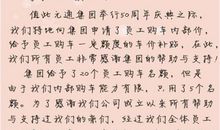 值此元通集团举行50周年庆典之际，
我们特地向集团申请了员工购车内部价，
给予员工购车一定额度的车价补贴，在此，
我们所有员工非常感谢集团的帮助与支持！
集团给予了20个员工购车名额，但是
由于我们内部购车能力有限，只用了5个名
额。为了感谢我们公司成立以来所有帮助
与支持过我们的亲们，经过我们全体员工